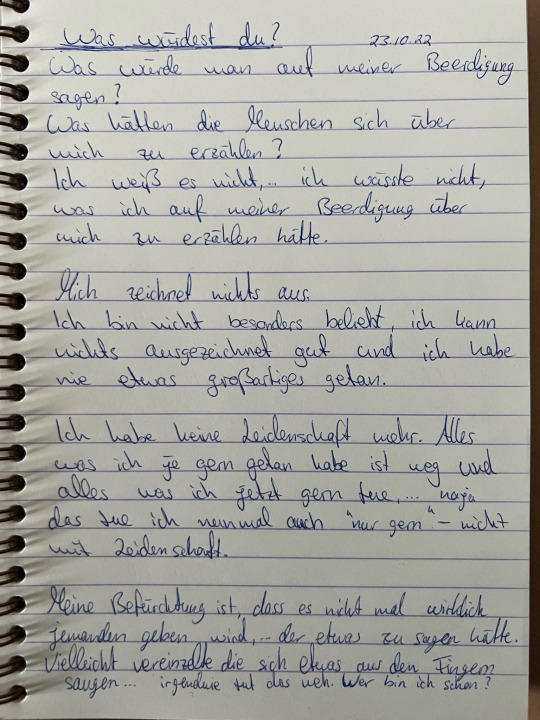 Was würdest du? 23.10.22
Was würde man auf meiner Beerdigung
sagen?
Was hätten die Menschen sich über
mich zu erzählen?
Ich weiß es nicht,... ich wüsste nicht,
was ich auf meiner Beerdigung über
mich zu erzählen hätte.
Mich zeichnet nichts aus.
Ich bin nicht besonders beliebt, ich kann
nichts ausgezeichnet gut und ich habe
nie etwas großartiges getan.
Ich habe keine Leidenschaft mehr. Alles
was ich je gern getan habe ist weg und
alles was ich jetzt gern tue,... naja
das tue ich nunmal auch "nur gern" - nicht
mit Leidenschaft.
Meine Befürchtung ist, dass es nicht mal wirklich
jemanden geben wird,... der etwas zu sagen hätte.
Vielleicht vereinzelte die sich etwas aus den Fingern
saugen... irgendwie tut das weh. Wer bin ich schon?